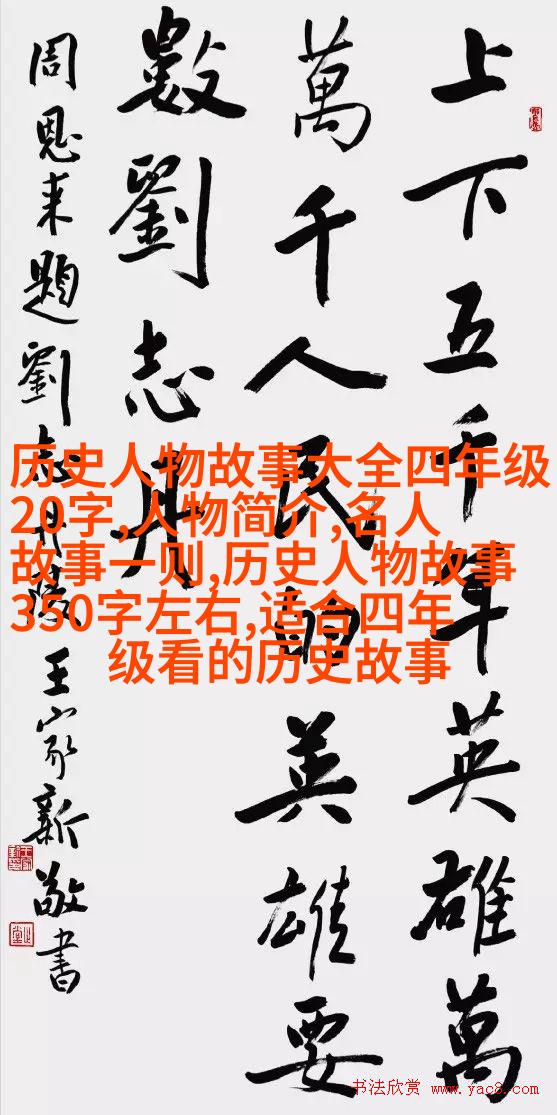 上下五千年英雄萬
萬千人民的英雄要
數劉志丹
周恩来題劉志丹陵王家新敬書
历史人物故事大全四年级
20字,人物简介,名人
故事一则,历史人物故事
350字左右,适合四年
级看的历史故事
书法欣赏 www.yac8.com